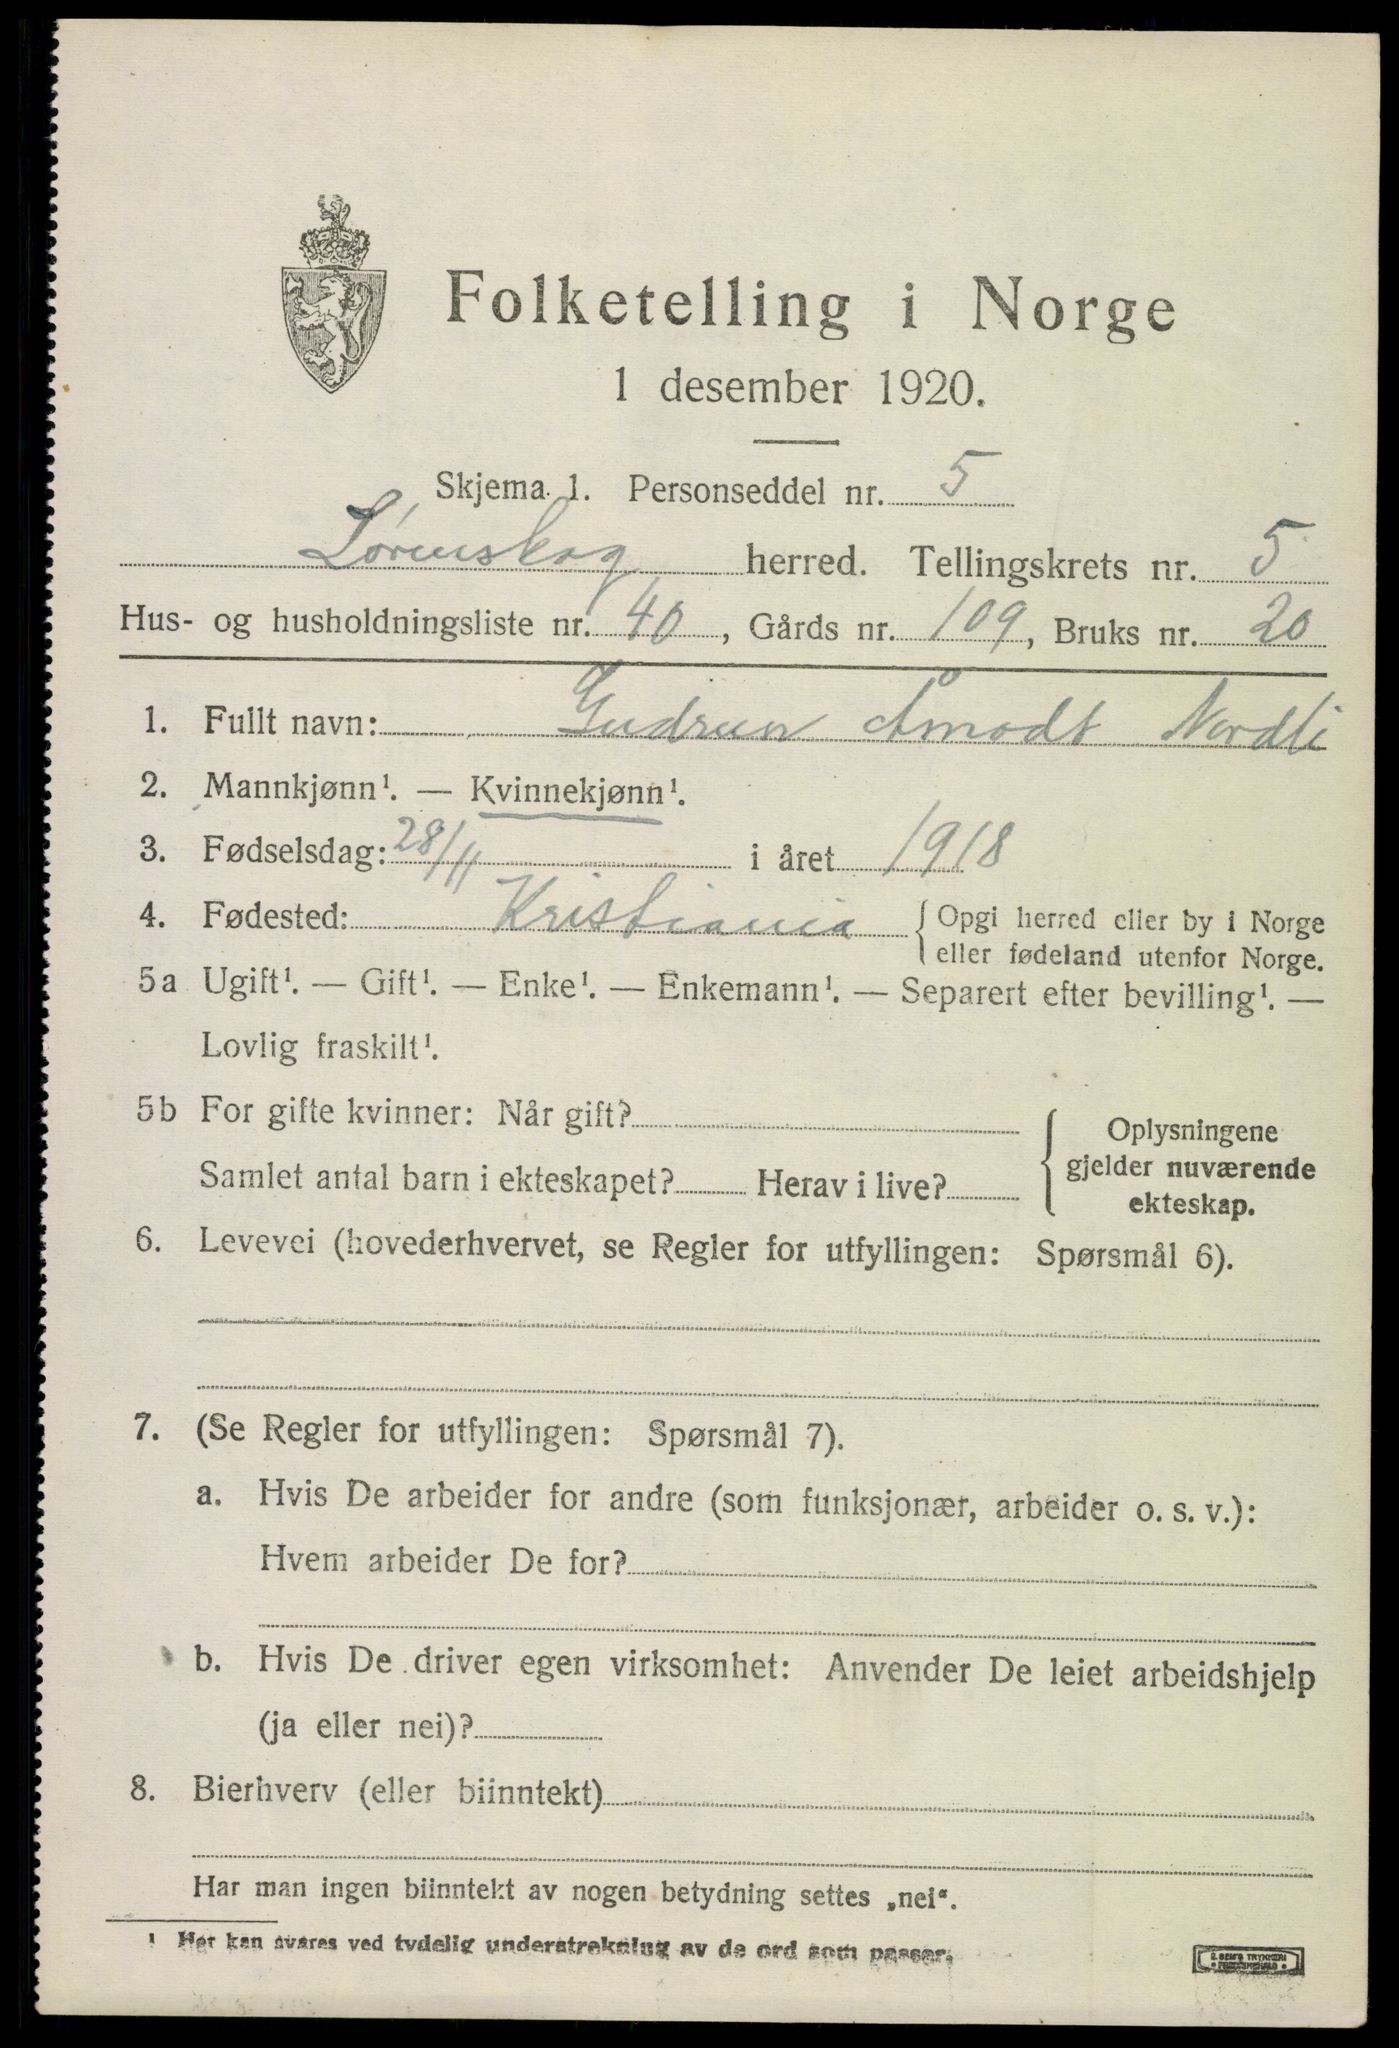 Folketelling i Norge
1 desember 1920.
Skjema 1. Personseddel nr. 5
Lørenskog herred. Tellingskrets nr. 5
Hus- og husholdningsliste nr. 40, Gårds nr. 109, Bruks nr. 20
1. Fullt navn: Gudrun Åmodt Nordli
2. Mannkjønn¹. — Kvinnekjønn¹.
3. Fødselsdag: 28/11 i året 1918
4. Fødested: Kristiania { Opgi herred eller by i Norge
eller fødeland utenfor Norge.
5a Ugift¹. — Gift¹. — Enke¹. — Enkemann¹. — Separert efter bevilling¹. —
Lovlig fraskilt¹.
5b For gifte kvinner: Når gift?
Samlet antal barn i ekteskapet? Herav i live?
{ Oplysningene
gjelder nuværende
ekteskap.
6. Levevei (hovederhvervet, se Regler for utfyllingen: Spørsmål 6).
7. (Se Regler for utfyllingen: Spørsmål 7).
a. Hvis De arbeider for andre (som funksjonær, arbeider o. s. v.):
Hvem arbeider De for?
b. Hvis De driver egen virksomhet: Anvender De leiet arbeidshjelp
(ja eller nei)?
8. Bierhverv (eller biinntekt)
Har man ingen biinntekt av nogen betydning settes „nei“.
¹ Her kan svares ved tydelig understrekning av de ord som passer.